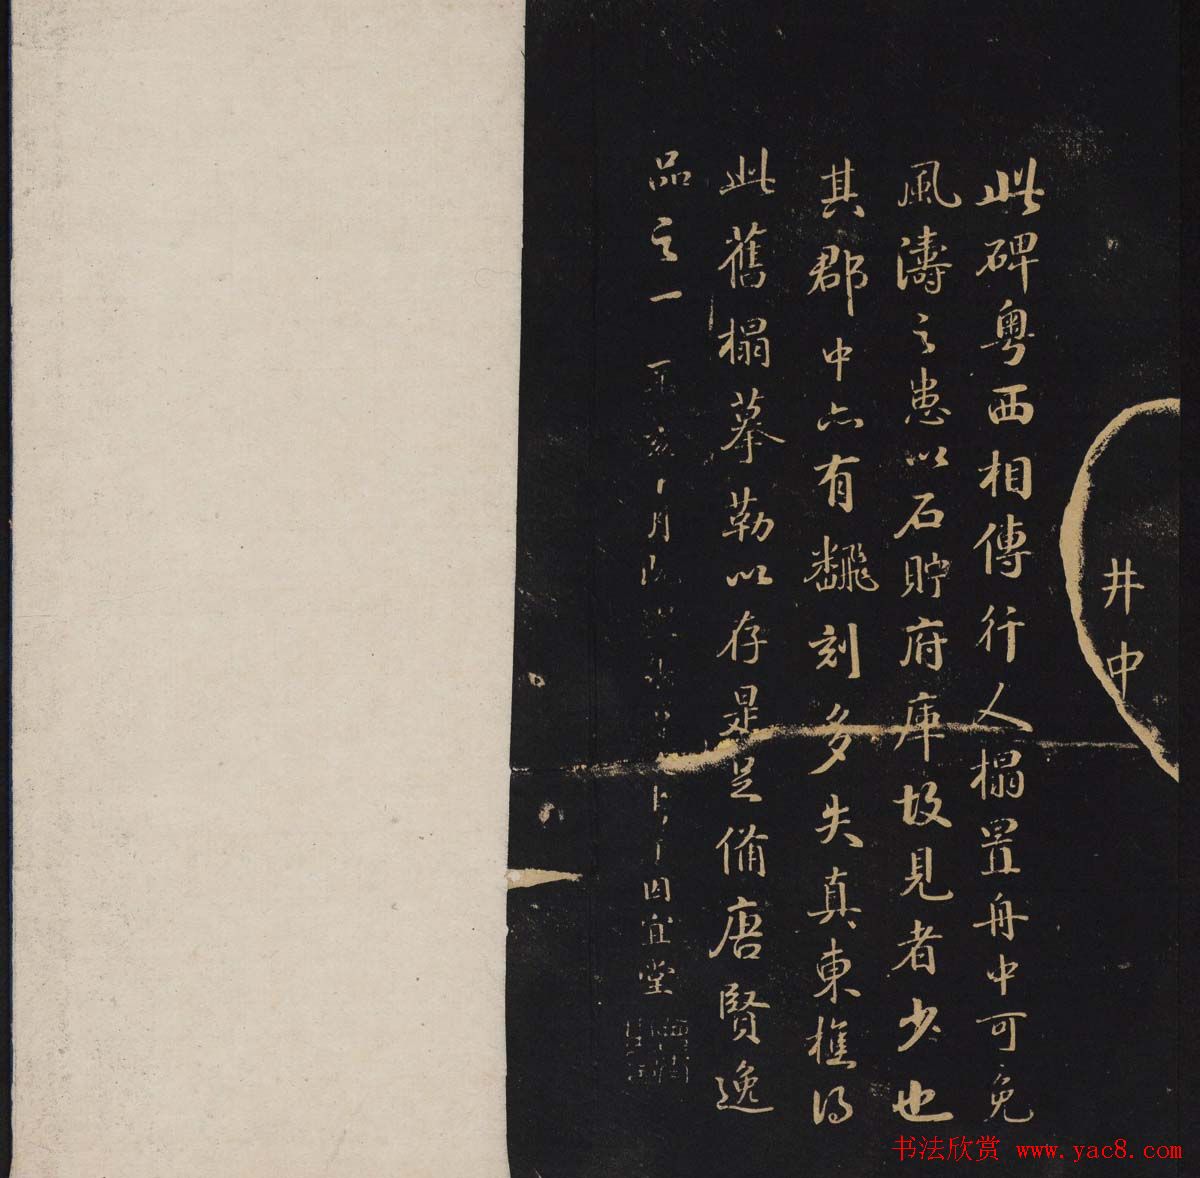 井中
此碑粵西相傳行人榻置舟中可免
風濤之患以石貯府庫故見者少也
其郡中亦有飜刻多失真東樵得
此舊榻摹勒以存是足備唐賢逸
品之一 亥十月 四宜堂
书法欣赏 www.yac8.com